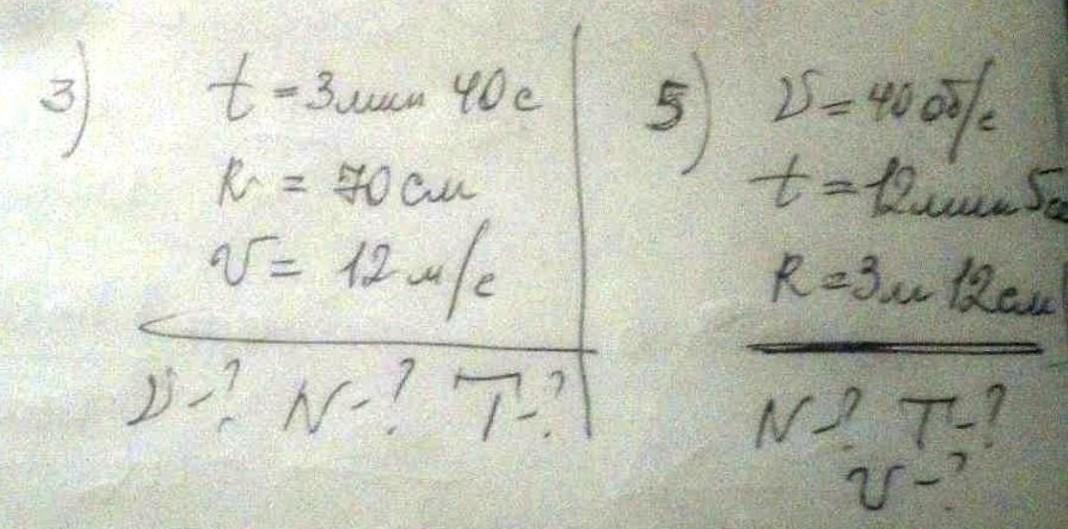 3)
t = 3 мин 40 с
R = 70 см
v = 12 м/с
ν - ? N - ? T - ?
5)
ν = 40 об/с
t = 12 мин 5с
R = 3 м 12 см
N - ? T - ?
v - ?